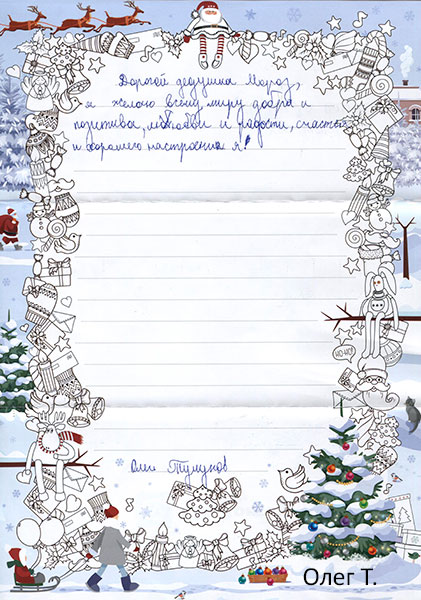 Дорогой дедушка Мороз,
я желаю всему миру добра и
позитива, любови и радости, счастья
и хорошего настроения я!
HO-HO!
Олег Тулупов
Олег Т.